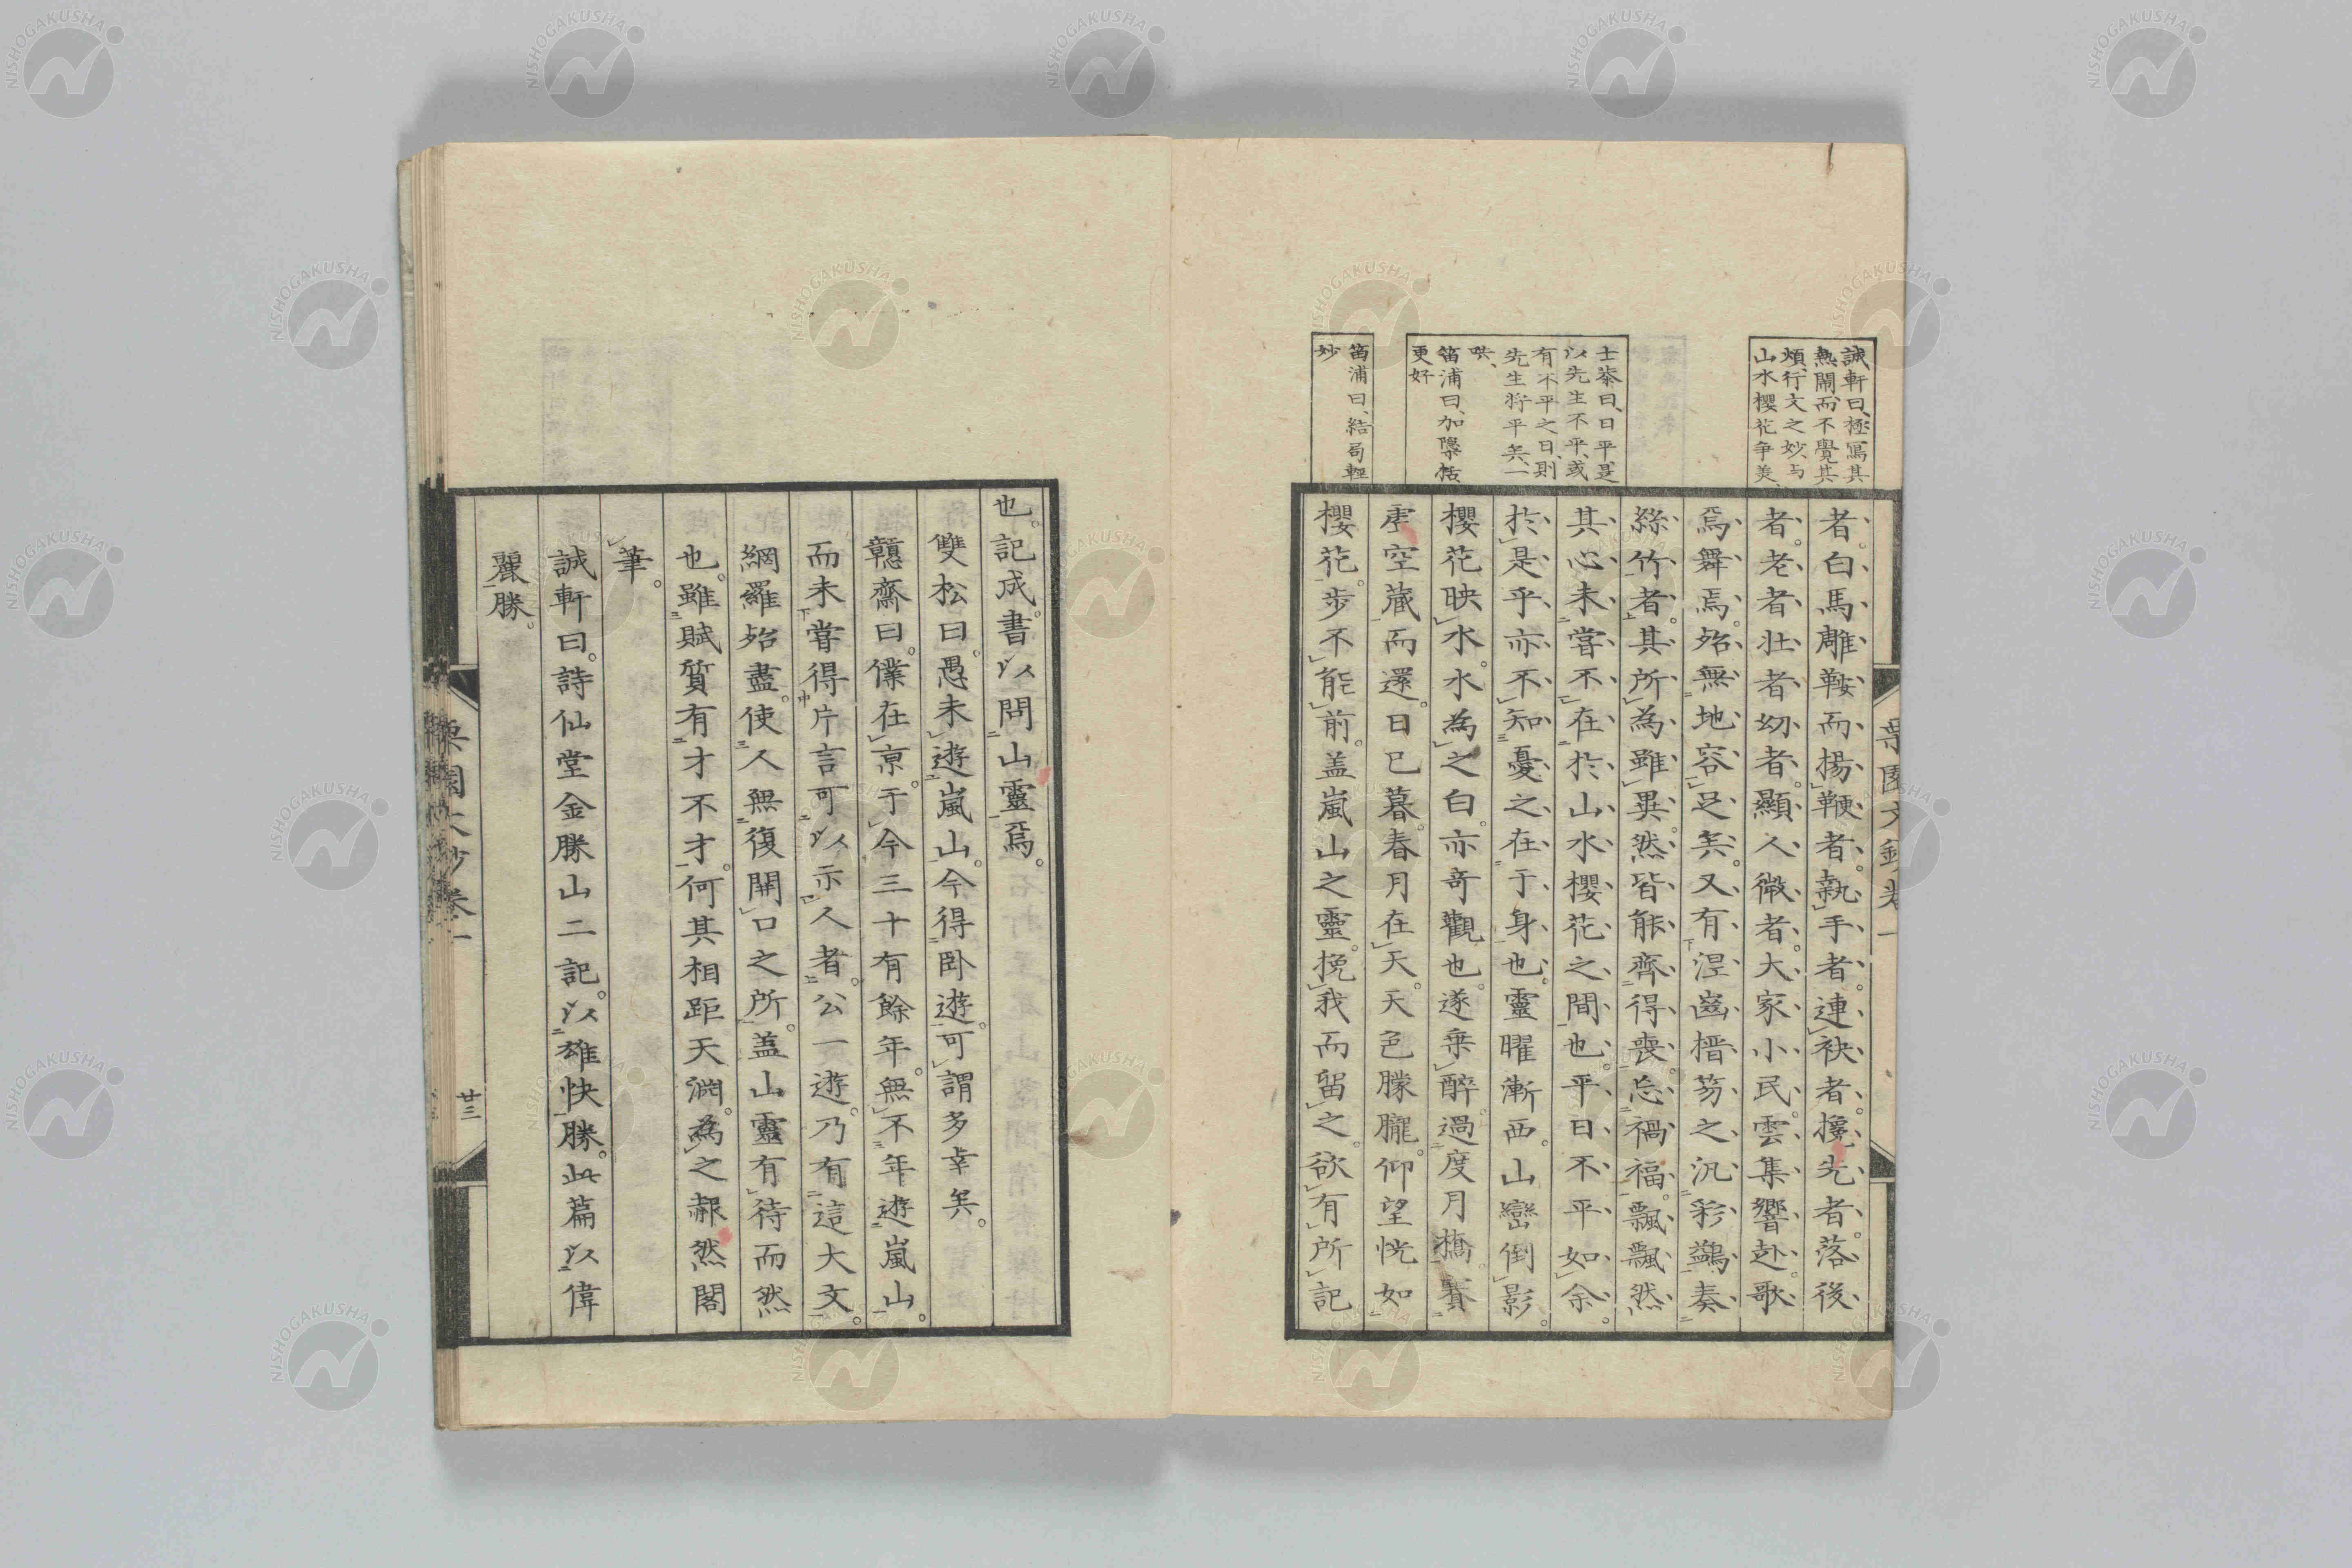 誠軒曰、極寫其
熱鬧、而不覺其
煩、行文之妙、与
山水櫻花争美、
士䅲曰、日平是
以先生不平、或
有不平之日、則
先生將平矣、一
哄、
笛浦曰、加檃栝
更好
笛浦曰、結局輕
妙
者。白馬雕鞍而揚鞭者。執手者。連袂者。攙先者。落後
者。老者壯者幼者。顯人微者。大家小民。雲集響赴。歌
焉舞焉。殆無地容足矣。又有涅齒搢笏之汎彩鷁奏
絲竹者。其所為雖異。然皆能齊得喪。忘禍福。飄飄然
其心未嘗不在於山水櫻花之間也。平日不平如余。
於是乎亦不知憂之在于身也。靈曜漸西。山巒倒影。
櫻花映水。水為之白。亦奇觀也。遂乗醉過度月橋。賽
虚空蔵而還。日已暮。春月在天。天色朦朧。仰望恍如
櫻花。步不能前。盖嵐山之靈。挽我而留之。欲有所記
也。記成。書以問山靈焉。
雙松曰。愚未遊嵐山。今得卧遊。可謂多幸矣。
戇齋曰。僕在京。于今三十有餘年。無不年遊嵐山。
而未嘗得片言可以示人者。公一遊。乃有這大文。
網羅殆盡。使人無復開口之所。盖山靈有待而然
也。雖賦質有才不才。何其相距天淵。為之赧然閣
筆。
誠軒曰。詩仙堂金勝山二記。以雄快勝。此篇以偉
麗勝。
卷一
廿三